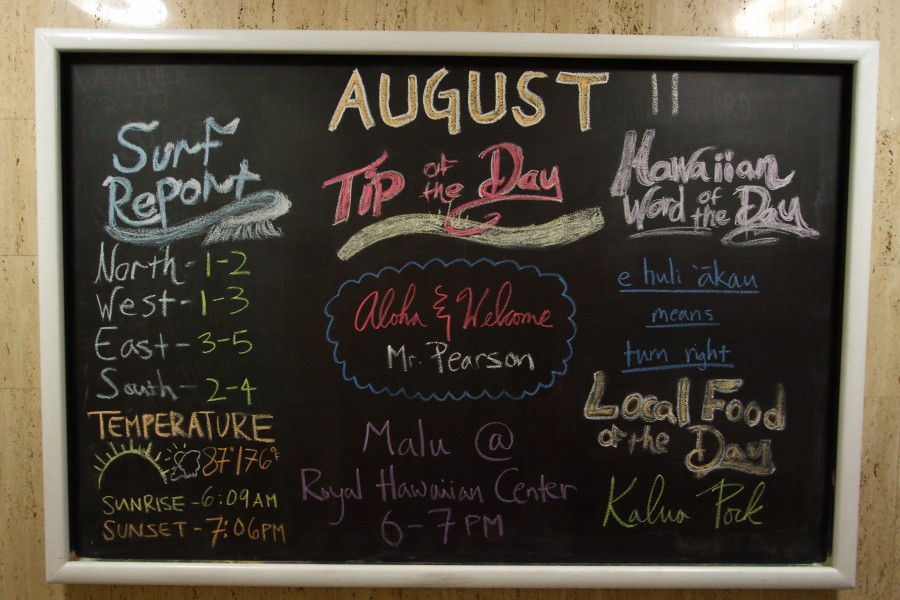 AUGUST 11
Surf
Report
North - 1-2
West - 1-3
East - 3-5
South - 2-4
TEMPERATURE
87°/76°F
SUNRISE - 6:09AM
SUNSET - 7:06PM
Tip of the Day
Aloha & Welcome
Mr. Pearson
Malu @
Royal Hawaiian Center
6-7PM
Hawaiian
Word of the Day
e huli 'ākau
means
turn right
Local Food
of the Day
Kalua Pork